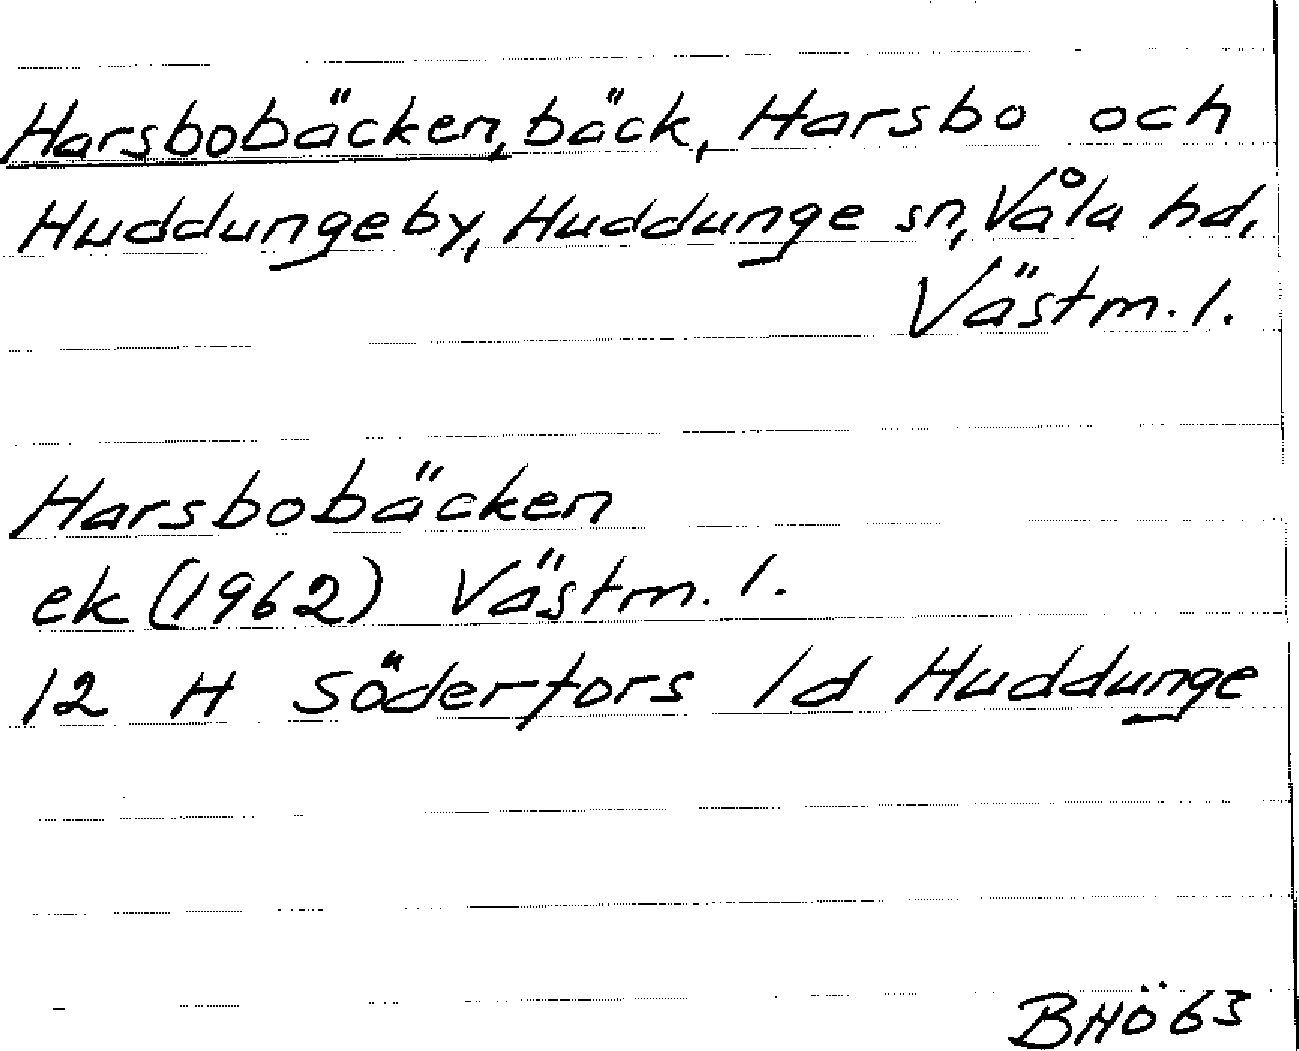 Harsbobäcken, bäck, Harsbo och
Huddungeby, Huddunge sn, Våla hd,
Västm. l.
Harsbobäcken
ek (1962) Västm. l.
12 H Söderfors 1d Huddunge
BHÖ 63